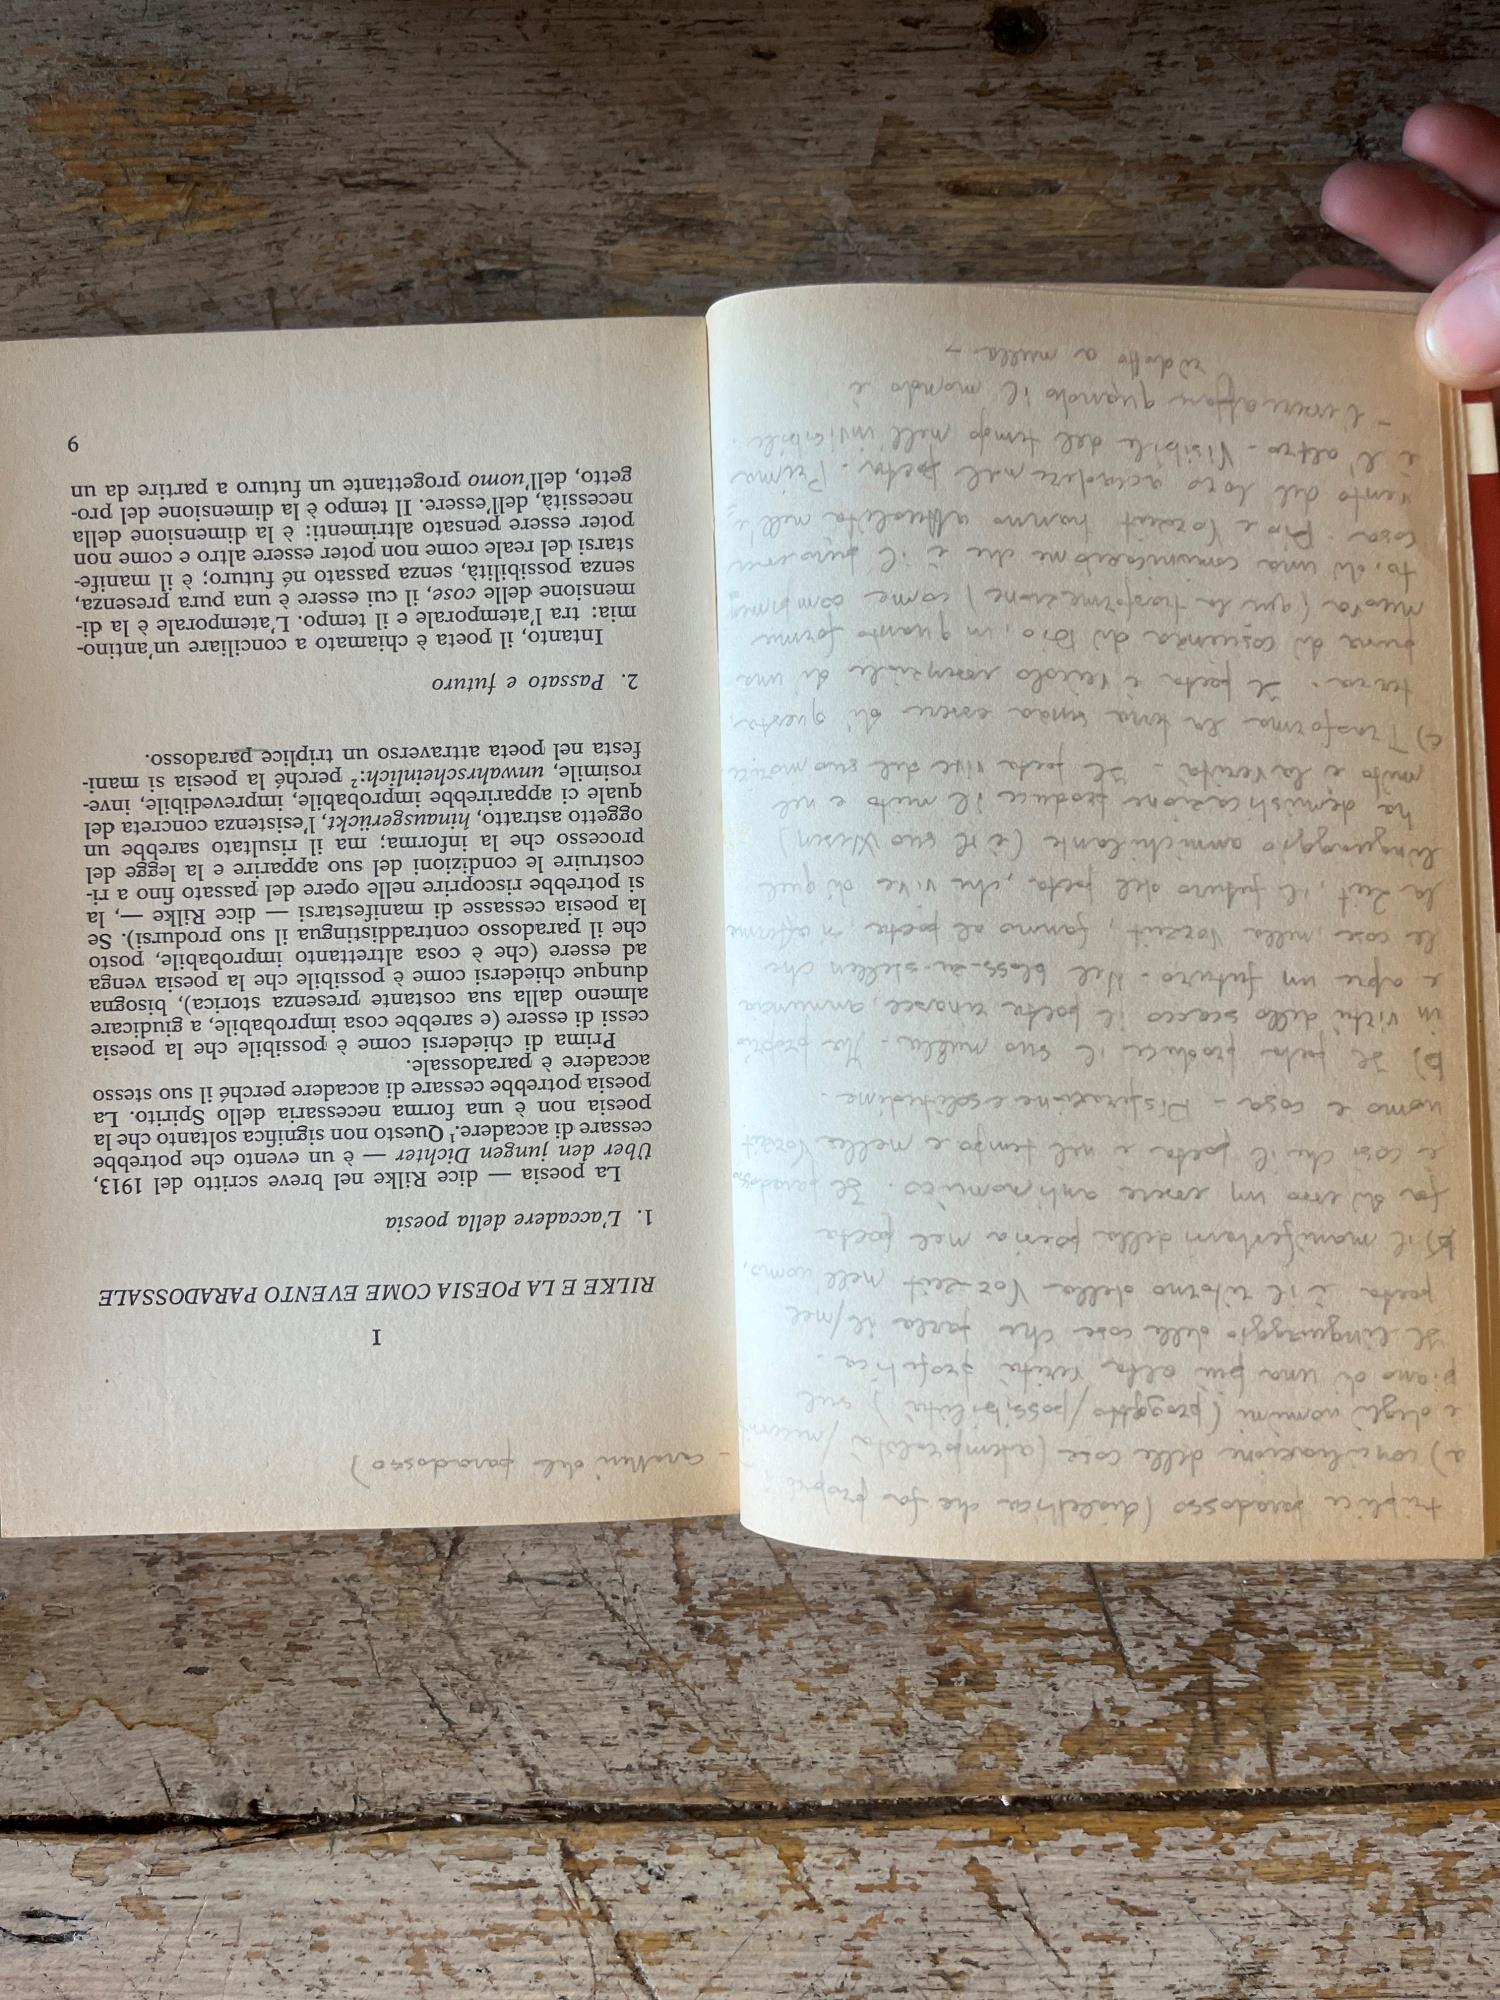 triplice paradosso (dialettica che fa propri i
a) conciliazione delle cose (atemporalità /
e degli uomini (progetto / possibilità) sul
piano di una più alta verità profetica.
Il linguaggio delle cose che parla il/nel
poeta è il ritorno della Vorzeit nell'uomo,
b) il manifestarsi della poesia nel poeta
fa di esso un essere antinomico. Il paradosso
è così che il poeta è nel tempo e nella Vorzeit
uomo e cosa - Disperazione e solitudine.
b) Il poeta produce il suo nulla - Ma proprio
in virtù dello scacco il poeta annuncia
e apre un futuro. Nel bloss-zu-stellen che
le cose, nella Vorzeit, fanno al poeta, si afferma
la Zeit, il futuro del poeta, che vive di quel
linguaggio annichilante (è il suo Wesen)
ha demistificazione produce il muto e nel
muto e la verità - Il poeta vive del suo morire.
c) Trasforma la terra senza essere di questa
terra. Il poeta è veicolo essenziale di una
pura di coscienza di Dio, in quanto forma
nuova (qui la trasformazione) come compimen
to, di una comunicazione che è il puro
cosa. Dio e Vorzeit hanno attualità nell'e
vento del loro accadere nel poeta. Prima
è l'altro - Visibile del tempo nell'invisibile.
- quando il mondo è
ridotto a nulla -
- del paradosso)
I
RILKE E LA POESIA COME EVENTO PARADOSSALE
1. L'accadere della poesia
La poesia — dice Rilke nel breve scritto del 1913,
Über den jungen Dichter — è un evento che potrebbe
cessare di accadere.¹ Questo non significa soltanto che la
poesia non è una forma necessaria dello Spirito. La
poesia potrebbe cessare di accadere perché il suo stesso
accadere è paradossale.
Prima di chiedersi come è possibile che la poesia
cessi di essere (e sarebbe cosa improbabile, a giudicare
almeno dalla sua costante presenza storica), bisogna
dunque chiedersi come è possibile che la poesia venga
ad essere (che è cosa altrettanto improbabile, posto
che il paradosso contraddistingua il suo prodursi). Se
la poesia cessasse di manifestarsi — dice Rilke —, la
si potrebbe riscoprire nelle opere del passato fino a ri-
costruire le condizioni del suo apparire e la legge del
processo che la informa; ma il risultato sarebbe un
oggetto astratto, hinausgerückt, l'esistenza concreta del
quale ci apparirebbe improbabile, imprevedibile, inve-
rosimile, unwahrscheinlich:² perché la poesia si mani-
festa nel poeta attraverso un triplice paradosso.
2. Passato e futuro
Intanto, il poeta è chiamato a conciliare un'antino-
mia: tra l'atemporale e il tempo. L'atemporale è la di-
mensione delle cose, il cui essere è una pura presenza,
senza possibilità, senza passato né futuro; è il manife-
starsi del reale come non poter essere altro e come non
poter essere pensato altrimenti: è la dimensione della
necessità, dell'essere. Il tempo è la dimensione del pro-
getto, dell'uomo progettante un futuro a partire da un
9